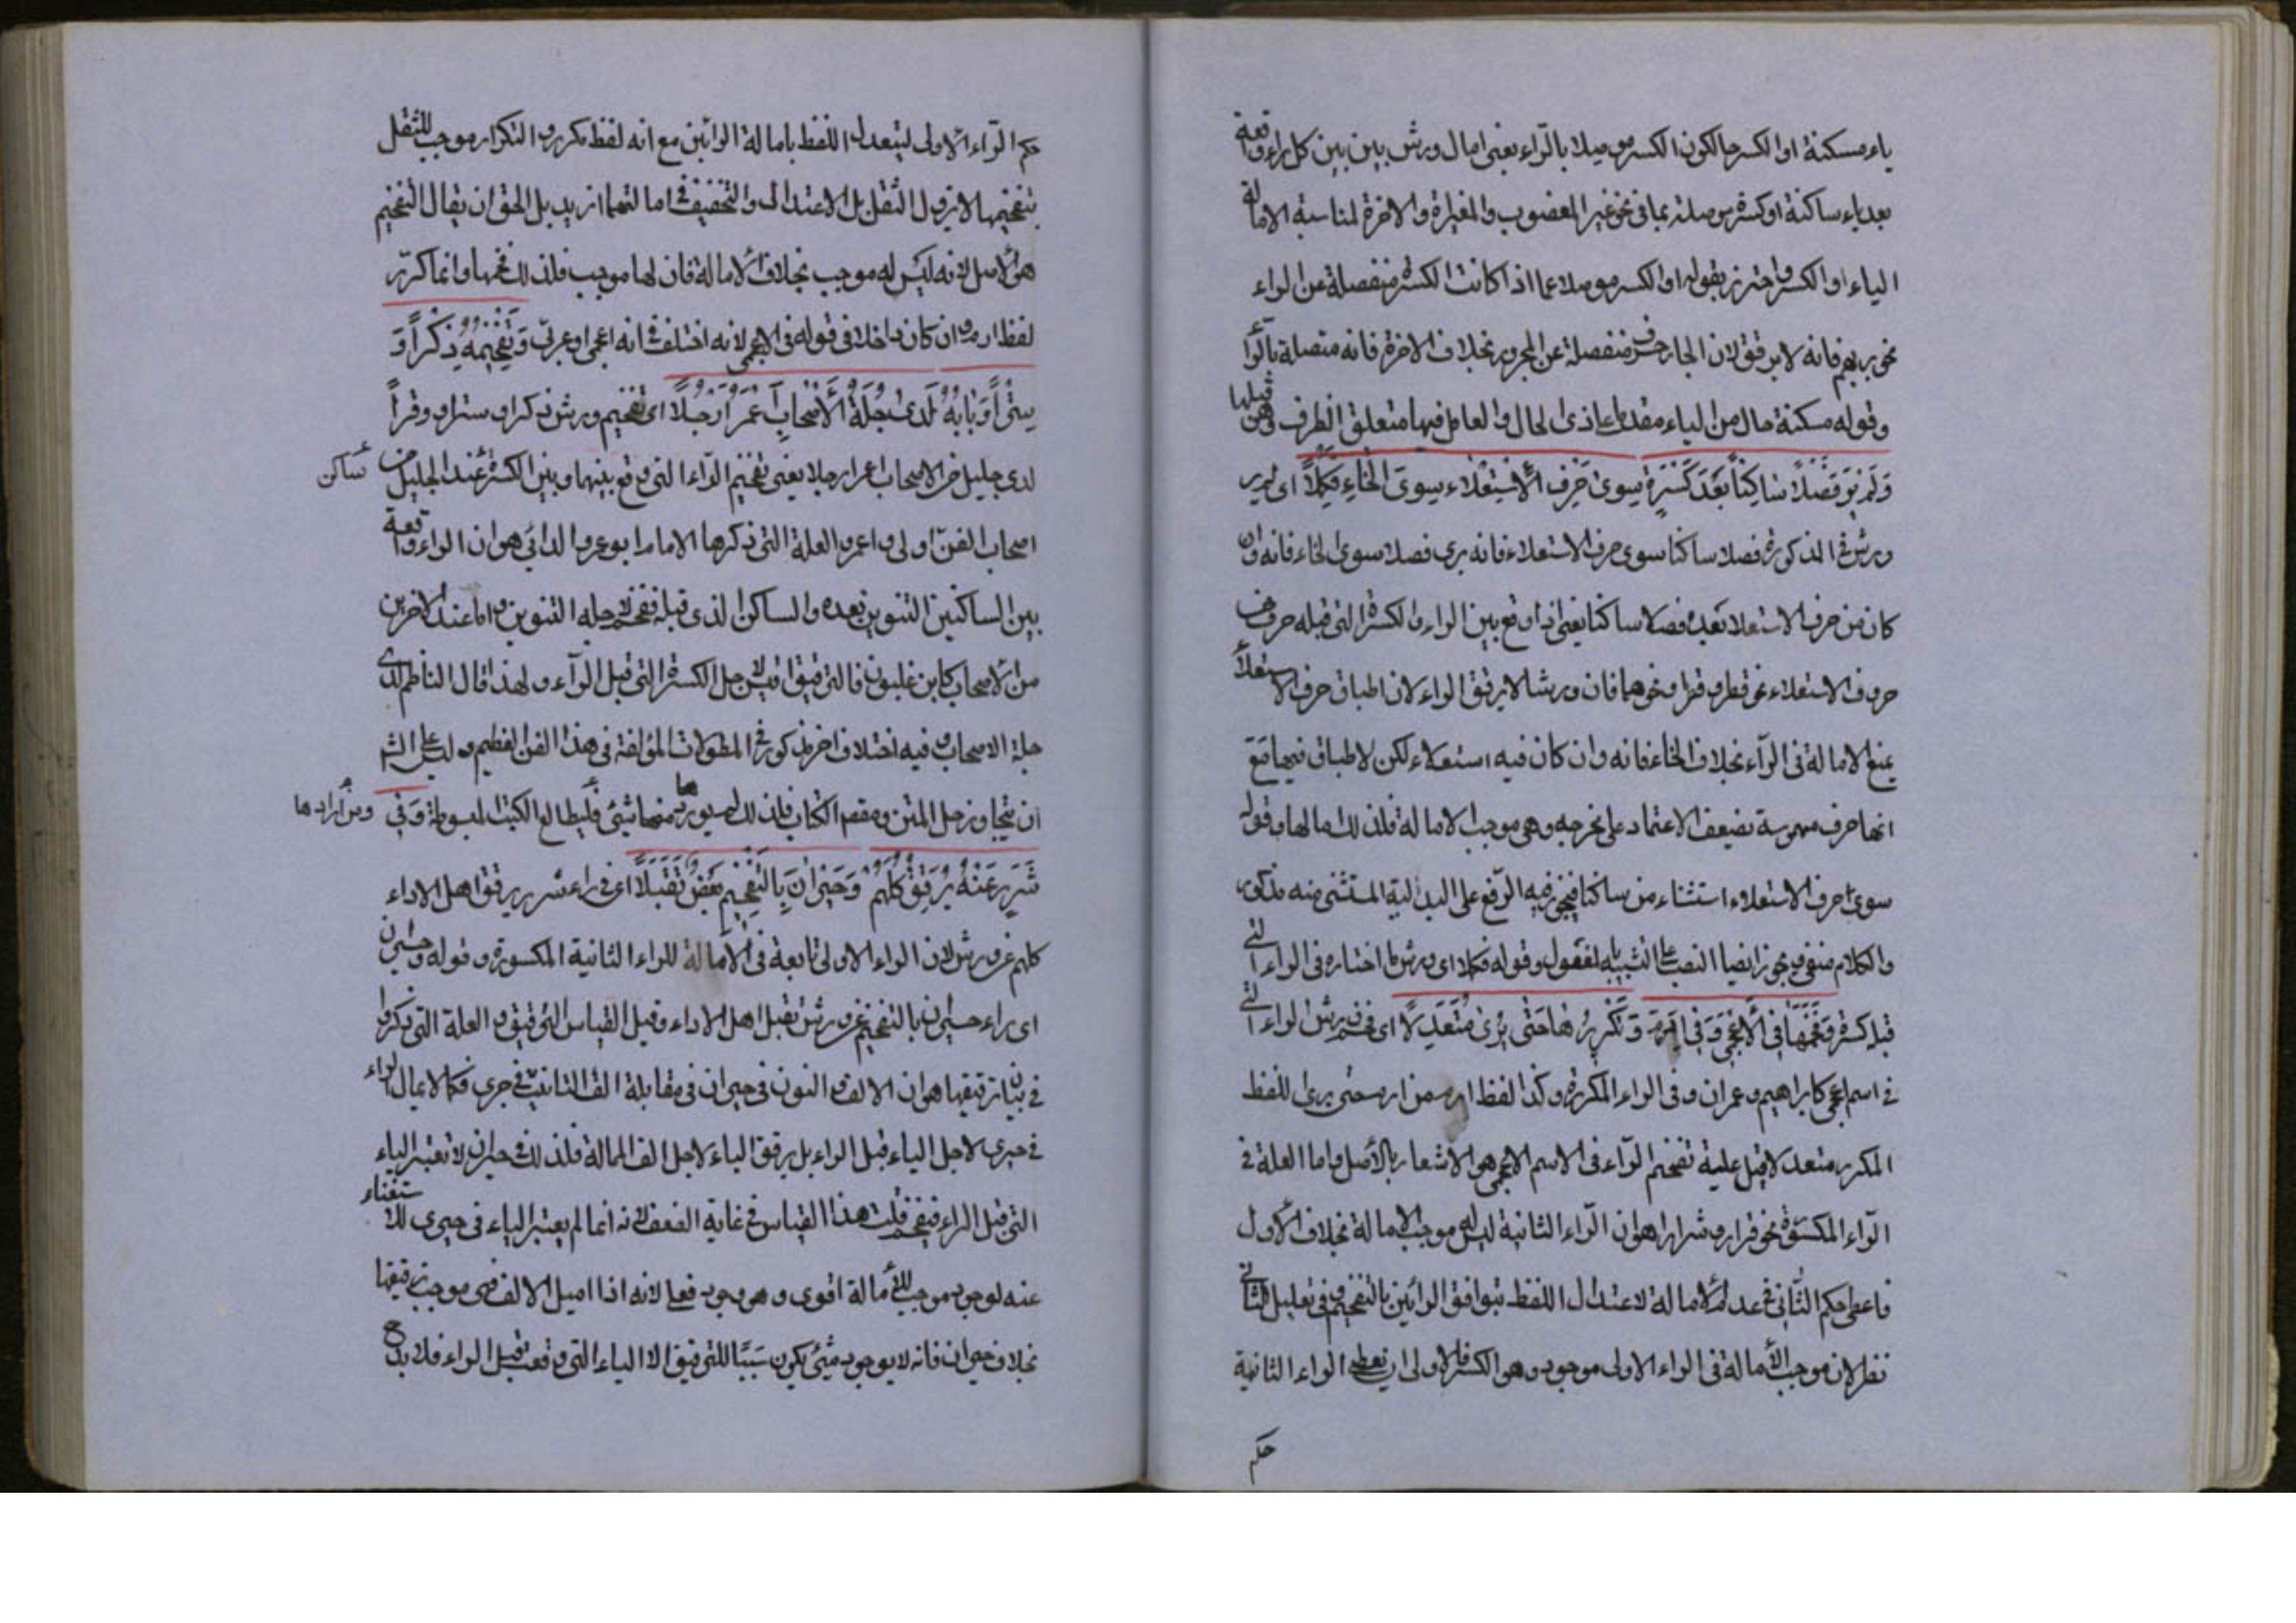 ياء مسكنة او الكسر حالكون الكسر موصلا بالراء يعنى امال ورش بين بين كل راء واقعة
بعد ياء ساكنة او كسرة موصلة بما فى نحو غير المغضوب والمغيرة والاخرة لمناسبة الامالة
الياء او الكسر واحترز بقوله او الكسر موصلا عما اذا كانت الكسرة منفصلة عن الراء
نحو بربهم فانه لا يرقق لان الجار حرف منفصلة عن المجرور بخلاف الاخرة فانه متصلة بالراء
وقوله مسكنة حال من الياء مقدما على ذى الحال والعامل فيها متعلق الظرف وهى قبلها
وَلَمْ يَرَ فَصْلًا سَاكِنًا بَعْدَ كَسْرَةٍ سِوَى حَرْفِ الْاسْتِعْلَاءِ سِوَى الْخَاءِ فَكَمَّلَا اى لم ير
ورش فى المذكورة فصلا ساكنا سوى حرف الاستعلاء فانه يرى فصلا سوى الخاء فانه وان
كان من حرف الاستعلا بعده فصلا ساكنا يعنى اذا وقع بين الراء والكسرة التى قبله حرف من
حروف الاستعلاء نحو قطرا وقرا ونحوهما فان ورشا لا يرقق الراء لان اطباق حرف الاستعلاء
يمنع الامالة فى الراء بخلاف الخاء فانه وان كان فيه استعلاء لكن لا طباق فيها مع
انها حرف مهموسة تضعف الاعتماد على مخرجه وهى موجب الامالة فلذلك امالها وقوله
سوى حرف الاستعلاء استثناء من ساكنا فيجوز فيه الرفع على البدلية المستثنى منه مذكور
والكلام منفى ويجوز ايضا النصب على التشبيه بالمفعول وقوله فكملا اى ورش ما اختاره فى الراء التى
قبله كسرة وَفَخَّمَهَا فِى الْأَعْجَمِى وَفِى إِرَمْ وَتَكْرِيرُهَا حَتَّى يُرَى مُتَعَدِّلًا اى فخم ورش الراء التى
فى اسم اعجمى كابراهيم وعمران وفى الراء المكررة وكذا لفظ ارم من ارم حتى يرى اللفظ
المكرر متعدلا قيل علية تفخم الراء فى الاسم الاعجمى هو الاشعار بالاصل واما العلة فى
الراء المكسورة نحو فرارا وشرارا هو ان الراء الثانية ليس له موجب الامالة بخلاف الاول
فاعطى حكم الثانى فى عدم الامالة لاعتدال اللفظ بتوافق الرائين بالتفخيم وفى تعليل الثانى
نظر لان موجب الامالة فى الراء الاولى موجود وهو الكسر فالاولى ان يعطى الراء الثانية
حكم
حكم الراء الاولى ليتعدل اللفظ بامالة الرائين مع انه لفظ مكرر والتكرار موجب للثقل
بتفخيمها لا يزول الثقل بل الاعتدال والتخفيف فى امالتهما ازيد بل الحق ان يقال التفخيم
هو الاصل لانه ليس له موجب بخلاف الامالة فان لها موجب فلذلك فخمها وانما كرر
لفظ ارم وان كان داخلا فى قوله فى الاعجمى لانه اختلف فى انه اعجمى او عربى وَتَفْخِيمُهُ ذِكْرًا وَ
سِتْرًا وَبَابَهُ لَدَى جُلَّةِ الْأَصْحَابِ أَعْمَرُ أَرْحُلَا اى تفخيم ورش ذكرا وسترا ووقرا
لدى جليل من الاصحاب اعمر ارحلا يعنى تفخيم الراء التى وقع بينها وبين الكسرة ساكن عند الجليل من
اصحاب الفن اولى واعمر والعلة التى ذكرها الامام ابو عمرو الدانى هو ان الراء واقعة
بين الساكنين التنوين بعده والساكن الذى قبله ففخم لاجله التنوين واما عند الاخرين
من الاصحاب كابن غلبون فالترقيق اقيس لاجل الكسرة التى قبل الراء ولهذا قال الناظم لدى
جلة الاصحاب وفيه اختلاف اخر مذكور فى المطولات المؤلفة فى هذا الفن العظيم وليس على الشا
ان يتجاوز حل المتن ومقصر الكتاب فلذلك لم يورد ها منها شيئ ومن اراد ها فليطالع الكتب المبسوطة وَفِى
شَرَرٍ عَنْهُ يُرَقِّقُ كُلُّهُمْ وَحَيْرَانَ بِالتَّفْخِيمِ بَعْضٌ تَقَبَّلَا اى فى راء شرر يرقق اهل الاداء
كلهم عن ورش لان الراء الاولى تابعة فى الامالة للراء الثانية المكسورة وقوله وحيران
اى راء حيران بالتفخيم عن ورش تقبل اهل الاداء وقيل القياس الترقيق والعلة التى ذكروا
فى بيان ترقيقها هو ان الالف والنون فى حيران فى مقابلة الف التانيث فى حيرى فكما لا يمال الراء
فى حيرى لاجل الياء قبل الراء بل يرقق الياء لاجل الف الممالة فلذلك فى حيران لا تعتبر الياء
التى قبل الراء فيفخم قلت هذا القياس فى غاية الضعف لانه انما لم يعتبر الياء فى حيرى للاستغناء
عنه لوجود موجب للامالة اقوى وهو وجود فعلى لانه اذا اميل الالف فهى موجب ترقيقها
بخلاف حيران فانه لا يوجد شيئ يكون سببا للترقيق الا الياء التى وقعت قبل الراء فلا بد